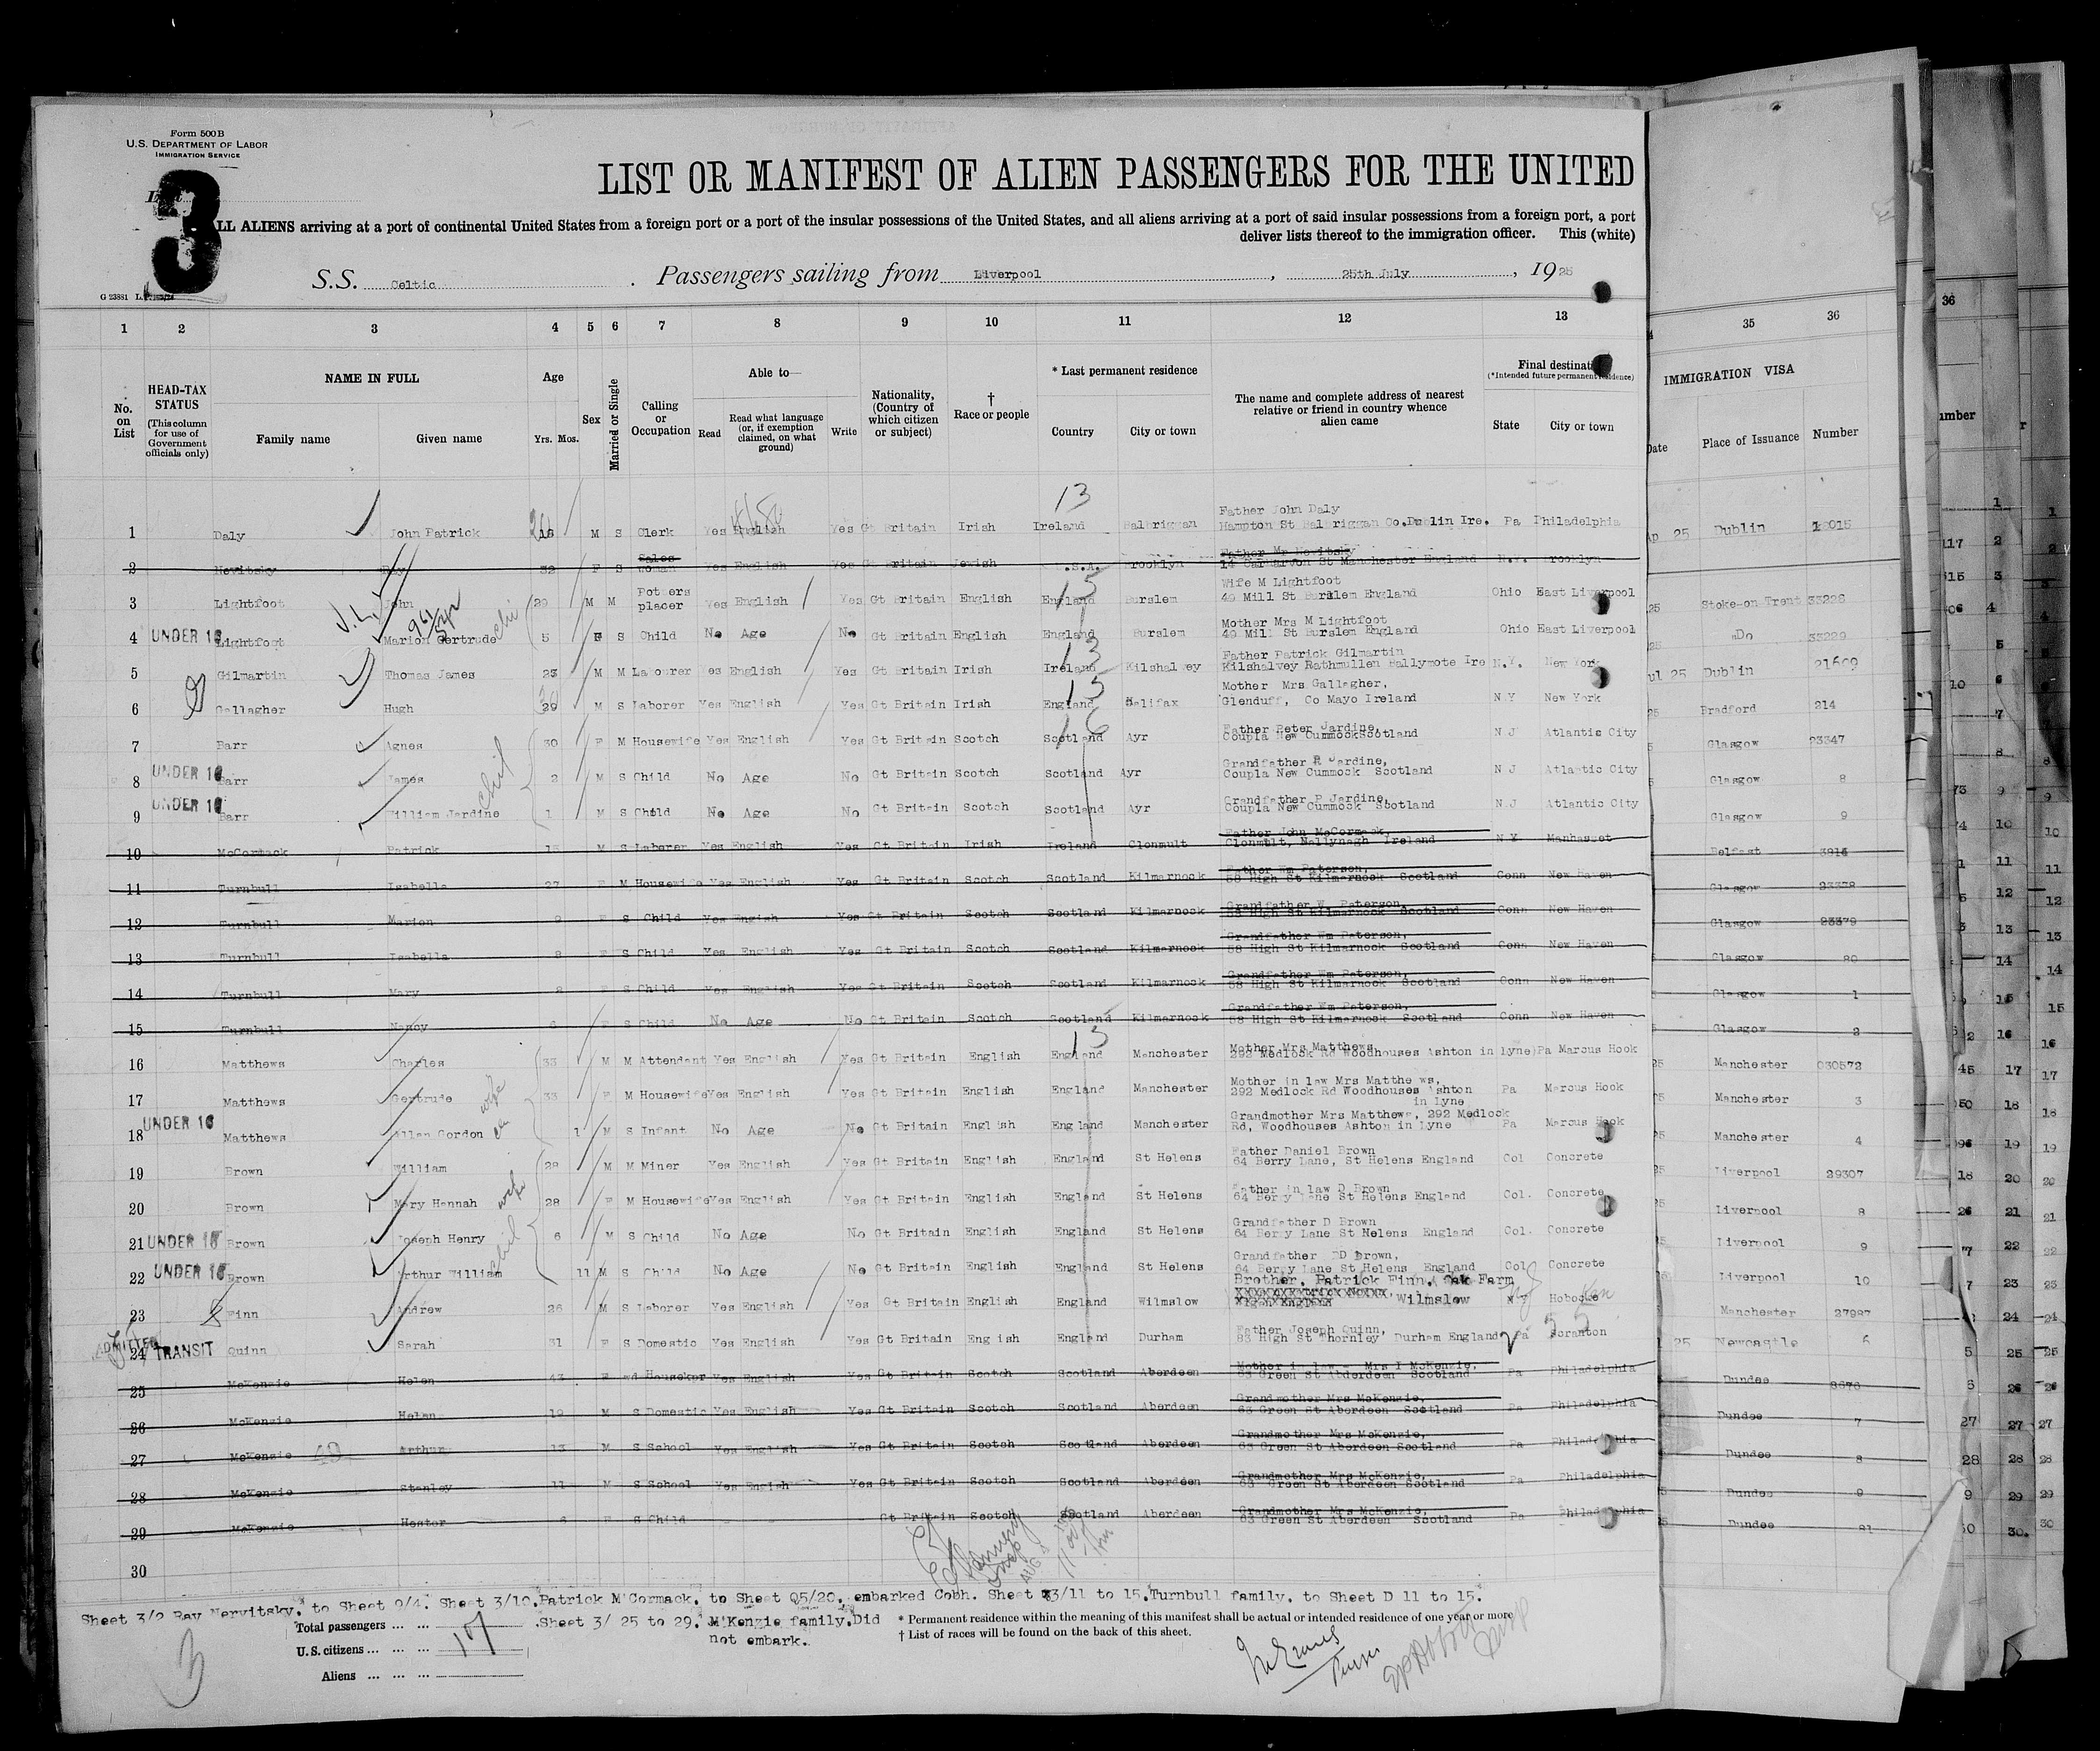 Form 500 B
U.S. DEPARTMENT OF LABOR
IMMIGRATION SERVICE
3
LIST OR MANIFEST OF ALIEN PASSENGERS FOR THE UNITED
ALL ALIENS arriving at a port of continental United States from a foreign port or a port of the insular possessions of the United States, and all aliens arriving at a port of said insular possessions from a foreign port, a port
deliver lists thereof to the immigration officer. This (white)
S.S. Celtic . Passengers sailing from Liverpool , 25th July , 1925
G 23881
1 2 3 4 5 6 7 8 9 10 11 12 13 35 36
No. on List
HEAD-TAX STATUS
(This column for use of Government officials only)
NAME IN FULL
Family name Given name
Age
Yrs. Mos.
Sex
Married or Single
Calling or Occupation
Able to—
Read
Read what language (or, if exemption claimed, on what ground)
Write
Nationality, (Country of which citizen or subject)
† Race or people
* Last permanent residence
Country City or town
The name and complete address of nearest relative or friend in country whence alien came
Final destination
(*Intended future permanent residence)
State City or town
IMMIGRATION VISA
Date Place of Issuance Number
1 Daly John Patrick M S Clerk Yes English Yes Gt Britain Irish Ireland Balbriggan Father John Daly Hampton St Balbriggan Co.Dublin Ire. Pa Philadelphia 25 Dublin
2 Nevitsky Ray 32 F S Sales woman Yes English Yes Gt Britain Jewish U.S.A. Brooklyn Father Mr Nevitsky 14 Carnarvon St Manchester England N.Y. Brooklyn
3 Lightfoot John 29 M M Potters placer Yes English Yes Gt Britain English England Burslem Wife M Lightfoot 49 Mill St Burslem England Ohio East Liverpool 25 Stoke-on Trent 33228
4 UNDER 16 Lightfoot Marion Gertrude 5 F S Child No Age No Gt Britain English England Burslem Mother Mrs M Lightfoot 49 Mill St Burslem England Ohio East Liverpool 25 Do 33229
5 Gilmartin Thomas James 23 M M Labourer Yes English Yes Gt Britain Irish Ireland Kilshalvey Father Patrick Gilmartin Kilshalvey Rathmullen Ballymote Ire N.Y. New York Jul 25 Dublin 21609
6 Gallagher Hugh M S Laborer Yes English Yes Gt Britain Irish England Halifax Mother Mrs Gallagher, Glenduff, Co Mayo Ireland N Y New York 25 Bradford 214
7 Barr Agnes 30 F M Housewife Yes English Yes Gt Britain Scotch Scotland Ayr Father Peter Jardine, Coupla New CummockScotland N J Atlantic City Glasgow 23347
8 UNDER 16 Barr James 2 M S Child No Age No Gt Britain Scotch Scotland Ayr Grandfather P Jardine, Coupla New Cummock Scotland N J Atlantic City Glasgow 8
9 UNDER 16 Barr William Jardine 1 M S Child No Age No Gt Britain Scotch Scotland Ayr Grandfather P Jardine, Coupla New Cummock Scotland N.J Atlantic City Glasgow 9
10 McCormack Patrick M S Laborer Yes English Yes Gt Britain Irish Ireland Clonmult Father John McCormack, Clonmult, Ballynagh Ireland N Y Manhasset Belfast
11 Turnbull Isabella 27 F M Housewife Yes English Yes Gt Britain Scotch Scotland Kilmarnock Father Wm Paterson, 58 High St Kilmarnock Scotland Conn New Haven Glasgow 23378
12 Turnbull Marion 9 F S Child Yes English Yes Gt Britain Scotch Scotland Kilmarnock Grandfather W Paterson 58 High St Kilmarnock Scotland Conn New Haven Glasgow 23379
13 Turnbull Isabella 8 F S Child Yes English Yes Gt Britain Scotch Scotland Kilmarnock Grandfather Wm Paterson, 58 High St Kilmarnock Scotland Conn New Haven Glasgow 80
14 Turnbull Mary 8 F S Child Yes English Yes Gt Britain Scotch Scotland Kilmarnock Grandfather Wm Paterson, 58 High St Kilmarnock Scotland Conn New Haven Glasgow 1
15 Turnbull Nancy 6 F S Child No Age No Gt Britain Scotch Scotland Kilmarnock Grandfather Wm Paterson, 58 High St Kilmarnock Scotland Conn New Haven Glasgow 2
16 Matthews Charles 33 M M Attendant Yes English Yes Gt Britain English England Manchester Mother Mrs Matthews 292 Medlock Rd Woodhouses Ashton in Lyne Pa Marcus Hook 25 Manchester 030572
17 Matthews Gertrude wife 33 F M Housewife Yes English Yes Gt Britain English England Manchester Mother in law Mrs Matthews, 292 Medlock Rd Woodhouses Ashton in Lyne Pa Marcus Hook 25 Manchester 3
18 UNDER 16 Matthews Allan Gordon 1 M S Infant No Age No Gt Britain English England Manchester Grandmother Mrs Matthews, 292 Medlock Rd, Woodhouses Ashton in Lyne Pa Marcus Hook 25 Manchester 4
19 Brown William 28 M M Miner Yes English Yes Gt Britain English England St Helens Father Daniel Brown 64 Berry Lane, St Helens England Col Concrete 25 Liverpool 29307
20 Brown Mary Hannah wife 28 F M Housewife Yes English Yes Gt Britain English England St Helens Father in law D Brown 64 Berry Lane St Helens England Col. Concrete Liverpool 8
21 UNDER 16 Brown Joseph Henry 6 M S Child No Age No Gt Britain English England St Helens Grandfather D Brown 64 Berry Lane St Helens England Col. Concrete Liverpool 9
22 UNDER 16 Brown Arthur William 11 M S Child No Age No Gt Britain English England St Helens Grandfather DD Brown, 64 Berry Lane St Helens England Col Concrete Liverpool 10
23 Finn Andrew 26 M S Laborer Yes English Yes Gt Britain English England Wilmslow Brother, Patrick Finn, Oak Farm Wilmslow Hoboken Manchester 27987
24 ADMITTED TRANSIT Quinn Sarah 31 F S Domestic Yes English Yes Gt Britain English England Durham Father Joseph Quinn, 83 High St Thornley Durham England Pa Scranton 25 Newcastle 6
25 McKenzie Helen 43 F Wd Housekpr Yes English Yes Gt Britain Scotch Scotland Aberdeen Mother in law - Mrs I McKenzie, 63 Green St Aberdeen Scotland Pa Philadelphia Dundee
26 McKenzie Helen 19 M S Domestic Yes English Yes Gt Britain Scotch Scotland Aberdeen Grandmother Mrs McKenzie, 63 Green St Aberdeen Scotland Pa Philadelphia Dundee 7
27 McKenzie Arthur 13 M S School Yes English Yes Gt Britain Scotch Scotland Aberdeen Grandmother Mrs McKenzie, 63 Green St Aberdeen Scotland Pa Philadelphia Dundee 8
28 McKenzie Stanley 11 M S School Yes English Yes Gt Britain Scotch Scotland Aberdeen Grandmother Mrs McKenzie, 63 Green St Aberdeen Scotland Pa Philadelphia Dundee 9
29 McKenzie Hester 6 F S Child Gt Britain Scotch Scotland Aberdeen Grandmother Mrs McKenzie, 63 Green St Aberdeen Scotland Pa Philadelphia Dundee 81
30
Sheet 3/2 Ray Nervitsky. to Sheet 9/4. Sheet 3/10.Patrick M'Cormack. to Sheet Q5/20. embarked Cobh. Sheet 3/11 to 15.Turnbull family. to Sheet D 11 to 15.
Sheet 3/ 25 to 29. M'Kenzie family.Did not embark.
Total passengers ... ...
U.S. citizens ... ... ... 17
Aliens ... ... ...
* Permanent residence within the meaning of this manifest shall be actual or intended residence of one year or more
† List of races will be found on the back of this sheet.
3
Purser